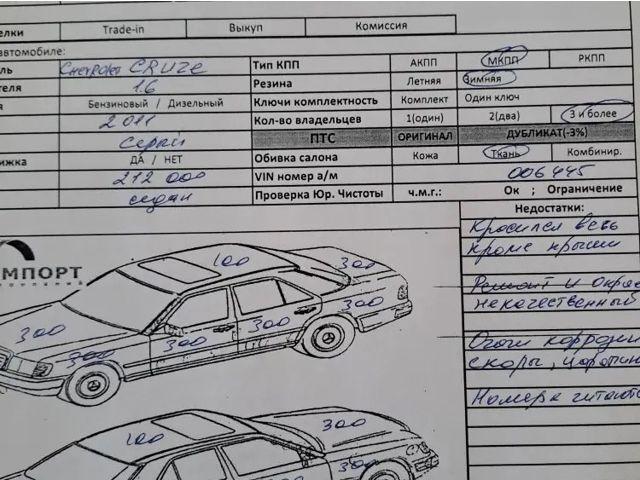 елки Trade-in Выкуп Комиссия
автомобиле:
ль Chevrolet CRUZE Тип КПП АКПП МКПП РКПП
ателя 1.6 Резина Летняя Зимняя
я Бензиновый / Дизельный Ключи комплектность Комплект Один ключ
2011 Кол-во владельцев 1(один) 2(два) 3 и более
Серый ПТС ОРИГИНАЛ ДУБЛИКАТ(-3%)
ижка ДА / НЕТ Обивка салона Кожа Ткань Комбинир.
212 000 VIN номер а/м 006445
седан Проверка Юр. Чистоты ч.м.г.: Ок ; Ограничение
Недостатки:
Красился весь
кроме крыши
Ремонт и окрас
некачественный
Очаги коррозии
сколы, царапин
Номера читаются
МПОРТ
компаний
100 300
300 300 300 300 300
100 300
300